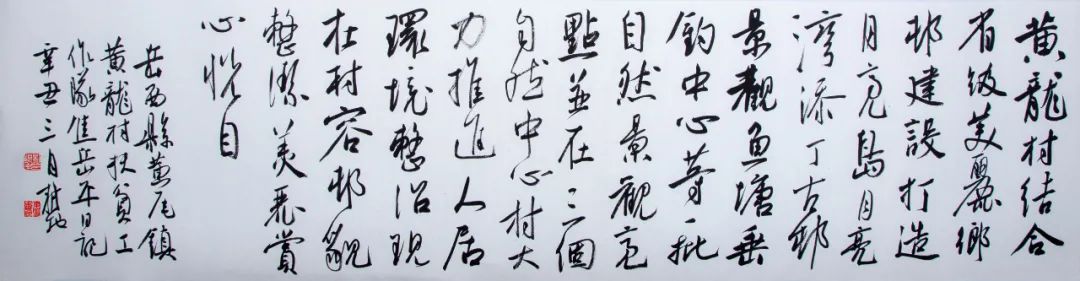 黄龍村结合
省级美麗鄉
邨建設打造
月亮島月亮
湾添丁古邨
景觀魚塘垂
釣中心等一批
自然景觀亮
點並在三個
自然中心村大
力推進人居
環境整治現
在村容邨貌
整潔美丽賞
心悦目
岳西縣黄尾镇
黄龍村扶貧工
作隊焦岳年日记
辛丑三月